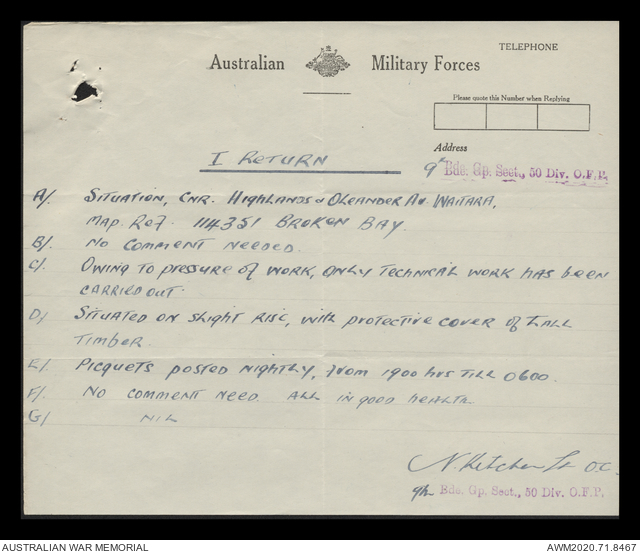 TELEPHONE
Australian Military Forces
Please quote this Number when Replying
Address
9th Bde. Gp. Sect., 50 Div. O.F.P.
I RETURN
A/. SITUATION, CNR. HIGHLANDS & OLEANDER AV. WAITARA,
MAP. REF. 114351 BROKEN BAY.
B/. NO COMMENT NEEDED.
C/. OWING TO PRESSURE OF WORK, ONLY TECHNICAL WORK HAS BEEN
CARRIED OUT.
D/. SITUATED ON SLIGHT RISE, WITH PROTECTIVE COVER OF TALL
TIMBER.
E/. PICQUETS POSTED NIGHTLY, FROM 1900 HRS TILL 0600.
F/. NO COMMENT NEED. ALL IN GOOD HEALTH.
G/ NIL
O.C.
9th Bde. Gp. Sect., 50 Div. O.F.P.
AUSTRALIAN WAR MEMORIAL
AWM2020.71.8467